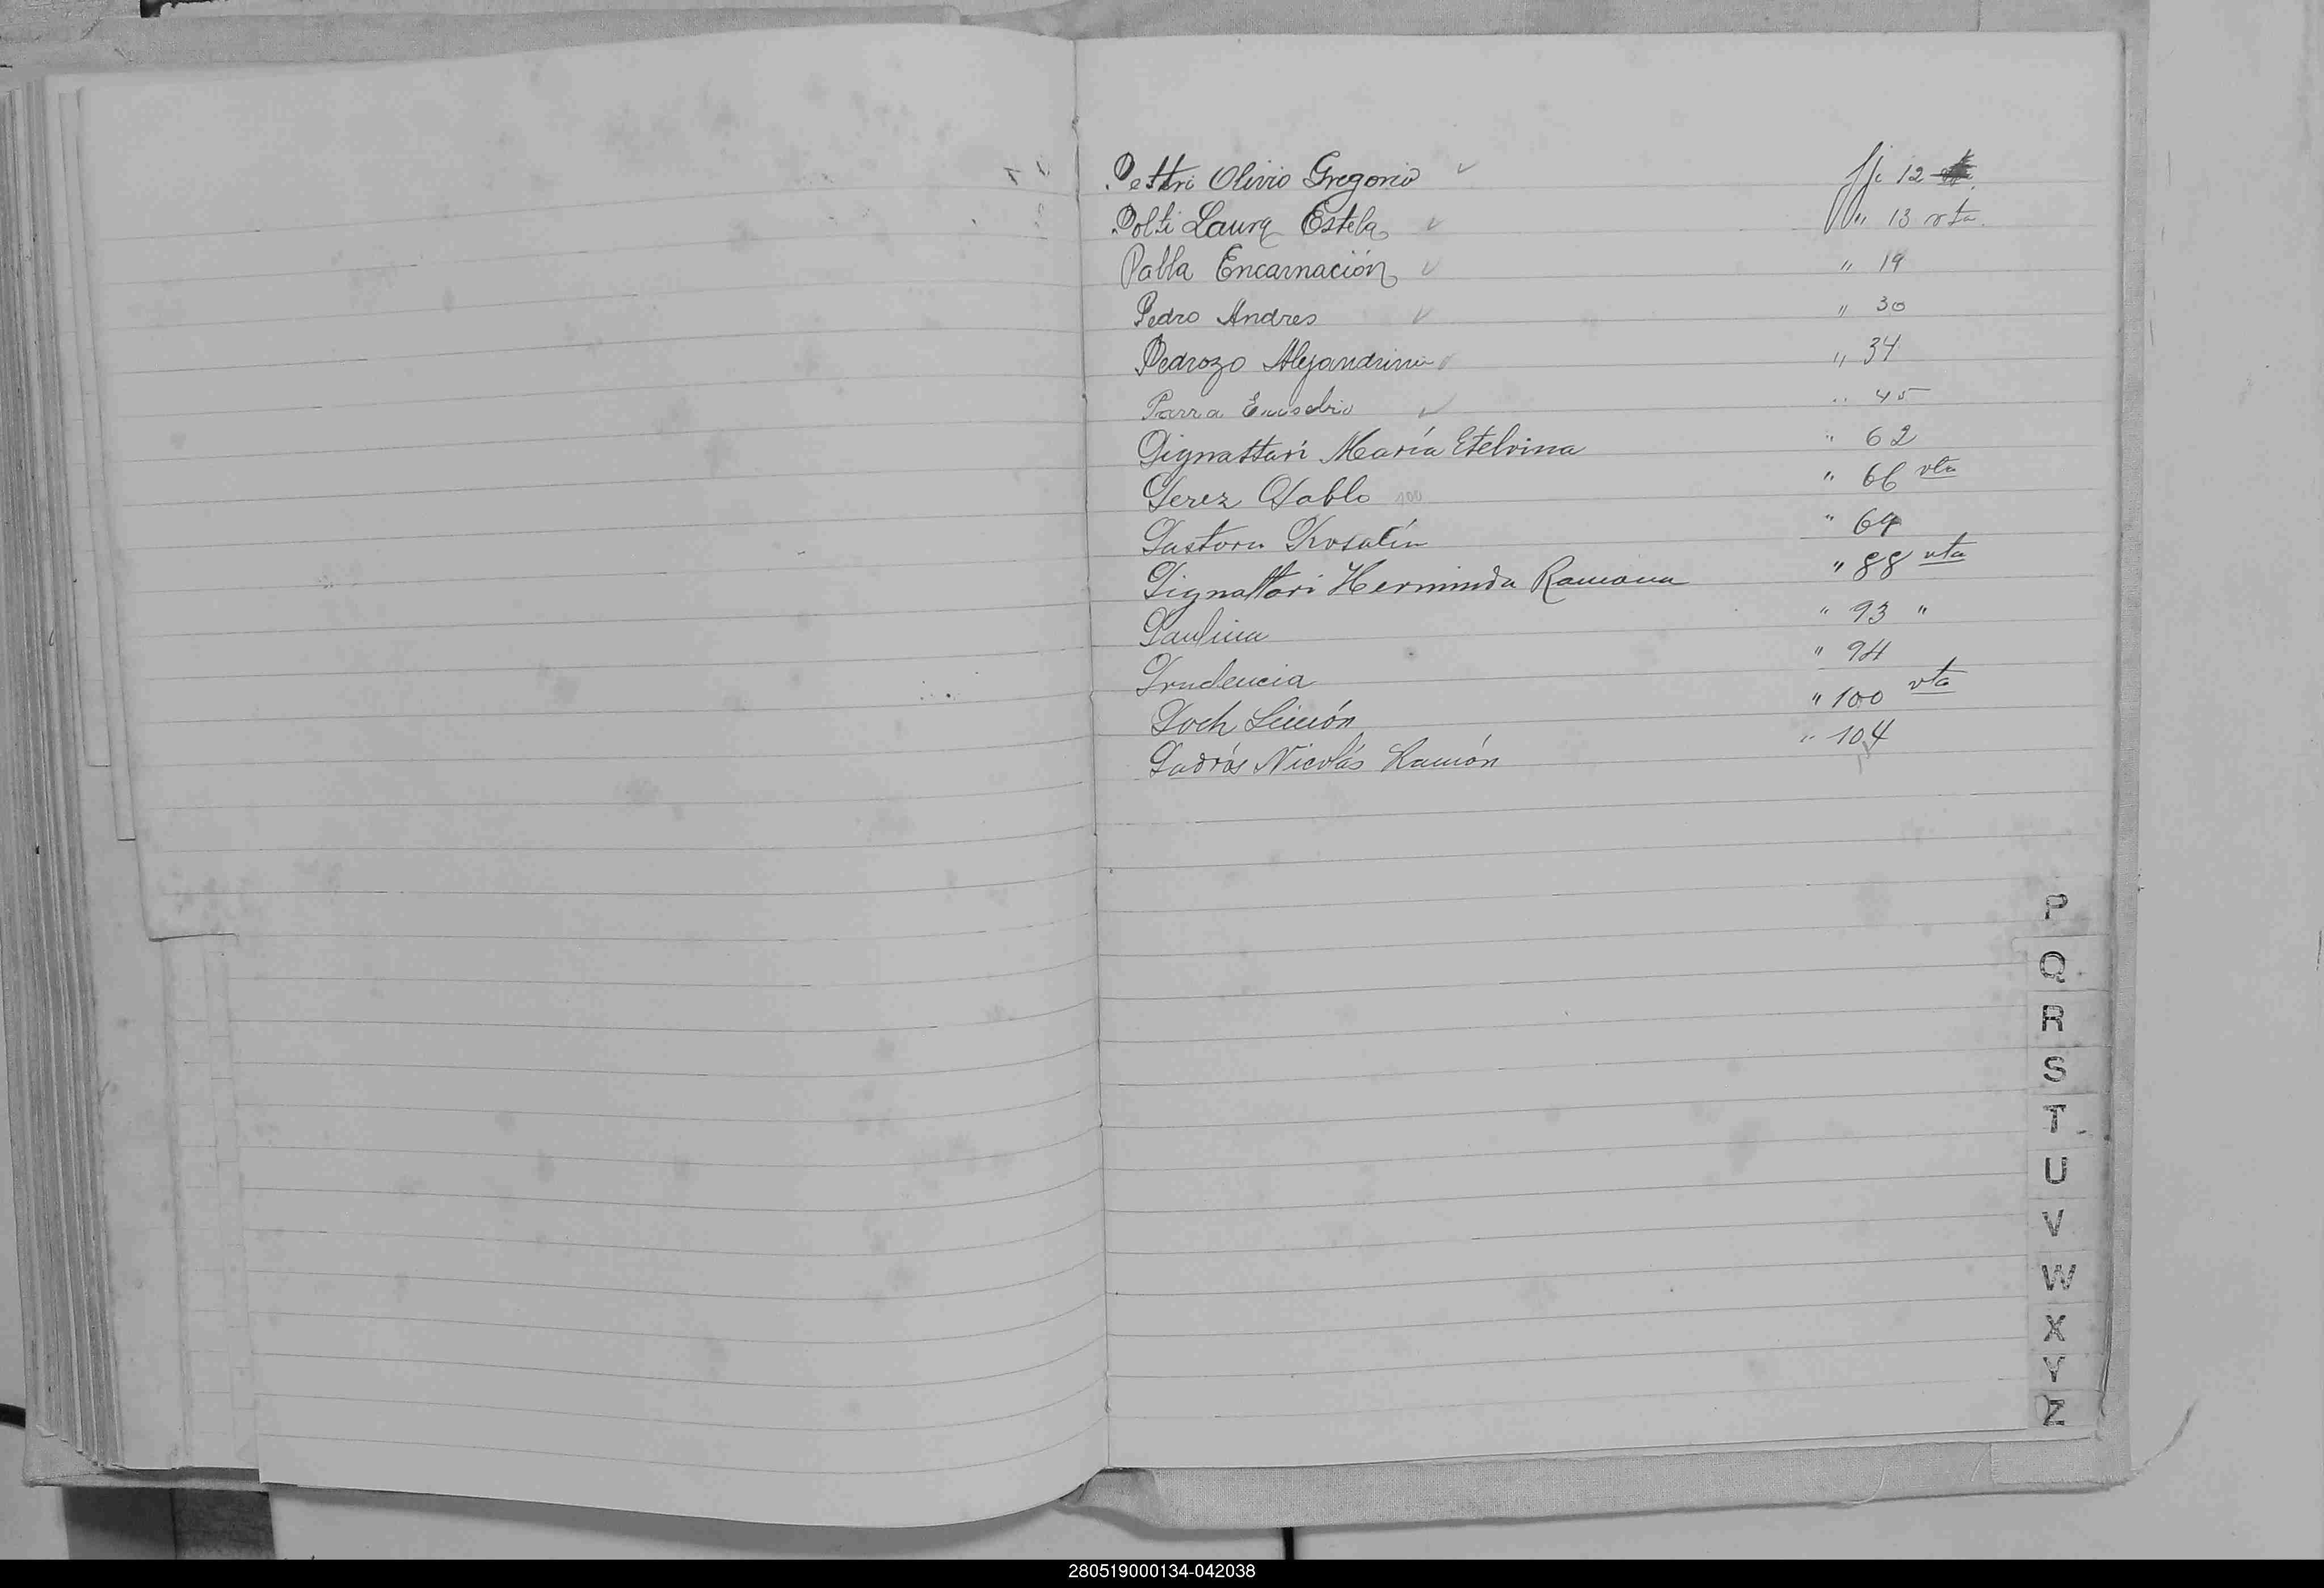 Pettri Olivio Gregorio fji 12
Polti Laura Estela " 13 vta.
Palla Encarnación " 19
Pedro Andres " 30
Pedrozo Alejandrino " 34
Parra Eusebio " 45
Pignattari María Etelvina " 62
Perez Pablo 100 " 66 vta
Pastora Rosalín " 69
Pignattari Herminda Ramona " 88 vta
Paulina " 93 "
Prudencia " 94
Poch Simón " 100 vta
Padrós Nicolás Ramón " 104
P
Q
R
S
T
U
V
W
X
Y
Z
280519000134-042038